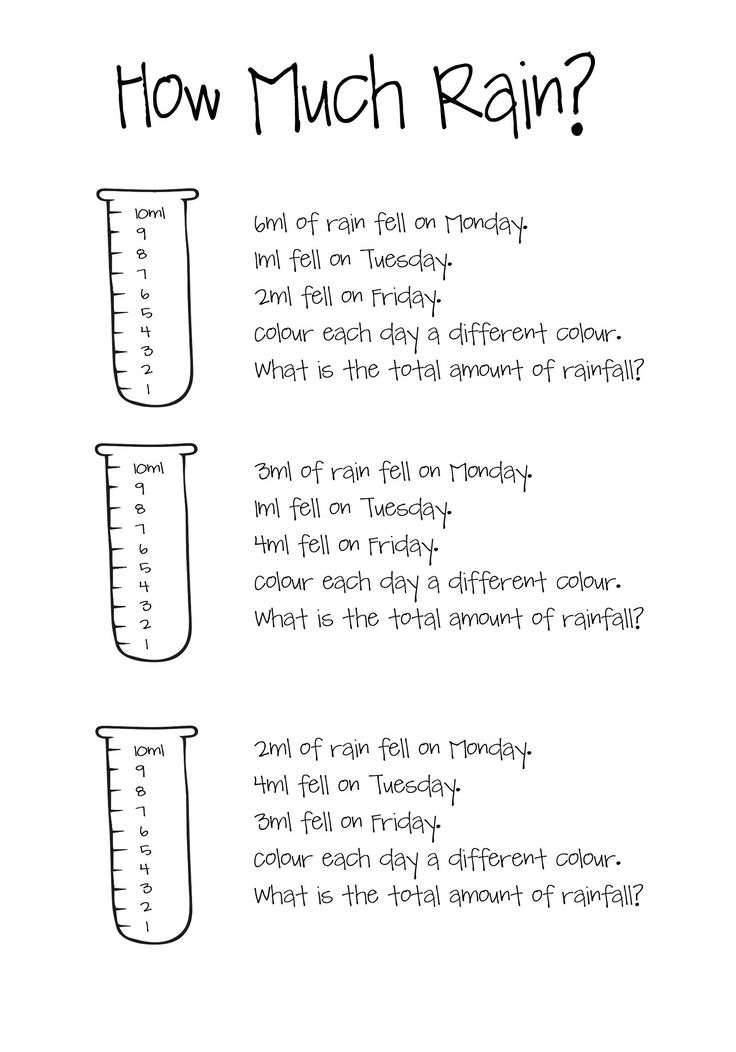 How Much Rain?
10ml
9
8
7
6
5
4
3
2
1
6ml of rain fell on Monday.
1ml fell on Tuesday.
2ml fell on Friday.
Colour each day a different colour.
What is the total amount of rainfall?
10ml
9
8
7
6
5
4
3
2
1
3ml of rain fell on Monday.
1ml fell on Tuesday.
4ml fell on Friday.
Colour each day a different colour.
What is the total amount of rainfall?
10ml
9
8
7
6
5
4
3
2
1
2ml of rain fell on Monday.
4ml fell on Tuesday.
3ml fell on Friday.
Colour each day a different colour.
What is the total amount of rainfall?